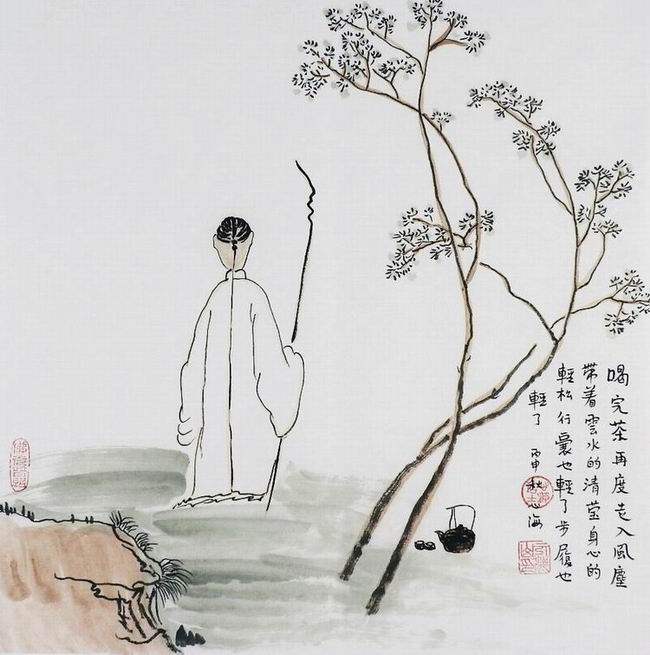 喝完茶再度走入風塵
带着雲水的清莹身心的
輕松行囊也輕了步履也
輕了
丙申秋心海